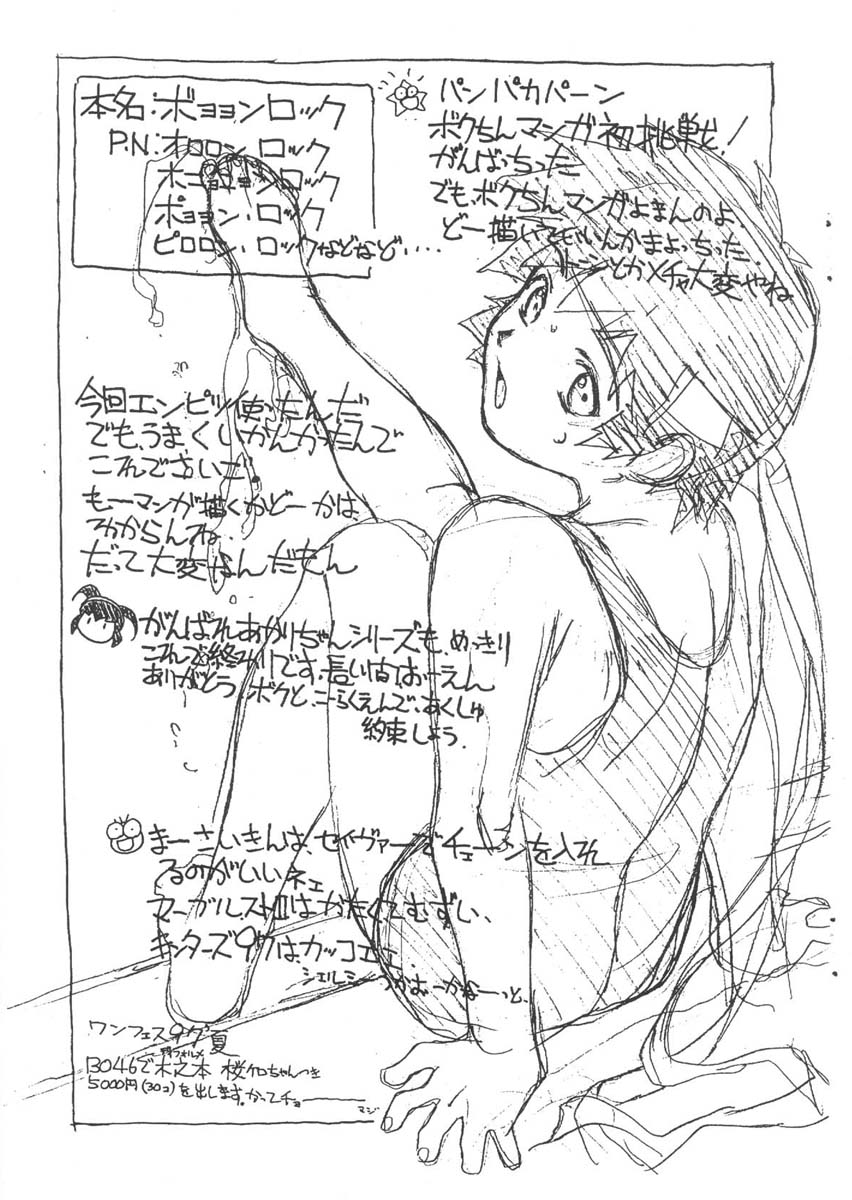 本名:ボョョンロック
P.N:オロロン ロック
ホニョョョンロック
ポョョン・ロック
ピロロン・ロックなどなど・・・・
パンパカパーン
ボクちんマンガ初挑戦!
がんばっちった
でも、ボクちんマンガよまんのよ、
どー描いていいんかまよっちった.
とかメチャ大変やね
今回エンピツ使ったんだ
でも、うまくいかんかったんで
これでさいご.
もーマンが描くかどーかは、
わからんね.
だって大変なんだもん
がんばれあかりちゃんシリーズも、めっきり
これで終わりです.長い間おーえん
ありがとう.ボクと、こーらくえんで、あくしゅ
約束しよう.
まーさいきんは、セイヴァーでチェーンを入れ
るのがいいネェ
マーヴルストIIはかたくてむずい、
キンターズ97は、カッコエー
シェルミーつかおーかなーっと、
ワンフェス97夏
B046で木之本 桜ケロちゃんつき
5000円(30コ)を出します.かってチョ———
マジ